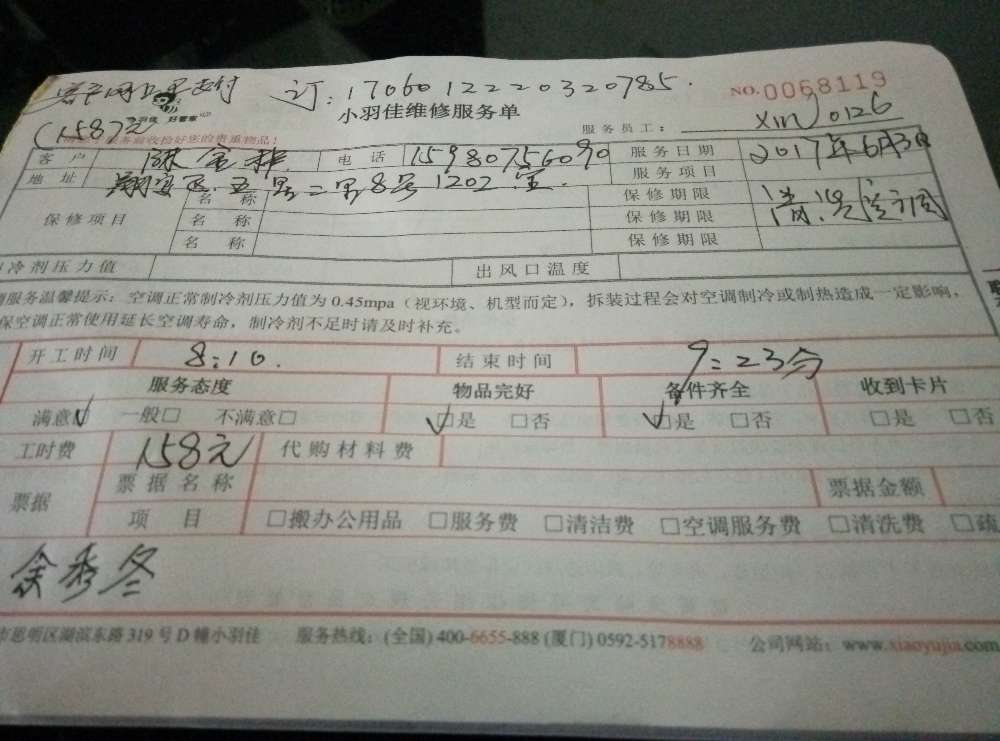 客户网上已支付 订:17060122220320785.
NO.0068119
小羽佳 好管家
小羽佳维修服务单
(158元)
服务前收捡好您的贵重物品!
服务员工: XM0126
客户 电话 15980756090 服务日期 2017年6月3日
地址 二里8号1202室. 服务项目
保修项目 名称 保修期限
名称 保修期限
名称 保修期限
冷剂压力值 出风口温度
服务温馨提示:空调正常制冷剂压力值为0.45mpa(视环境、机型而定),拆装过程会对空调制冷或制热造成一定影响,
保空调正常使用延长空调寿命,制冷剂不足时请及时补充。
开工时间 8:10. 结束时间 9:23分
服务态度 物品完好 备件齐全 收到卡片
满意√ 一般□ 不满意□ √□是 □否 √□是 □否 □是 □否
工时费 158元 代购材料费
票据 票据名称 票据金额
项目 □搬办公用品 □服务费 □清洁费 □空调服务费 □清洗费 □疏
余秀冬
市思明区湖滨东路319号D幢小羽佳 服务热线:(全国)400-6655-888 (厦门)0592-5178888 公司网站:www.xiaoyujia.com